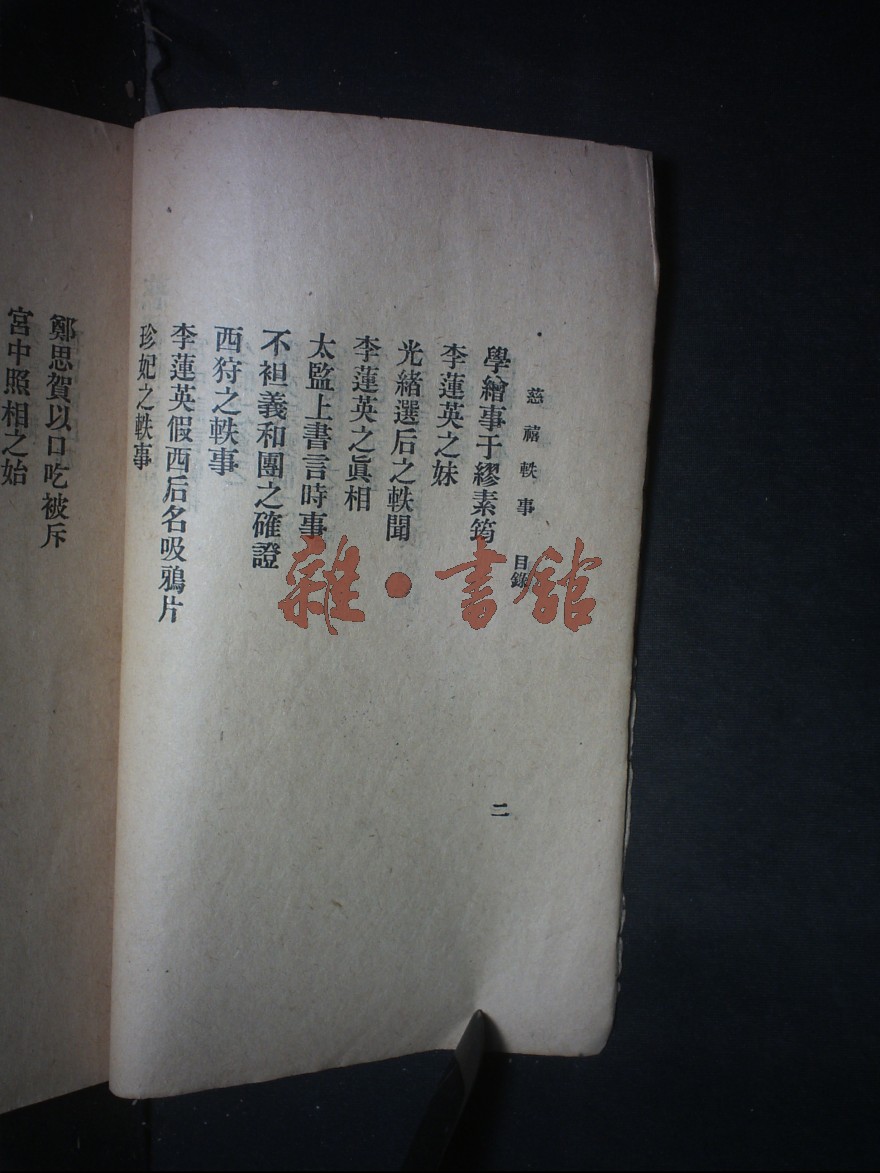 慈禧軼事 目錄
學繪事于繆素筠
李蓮英之妹
光緒選后之軼聞
李蓮英之眞相
太監上書言時事
不袒義和團之確證
西狩之軼事
李蓮英假西后名吸鴉片
珍妃之軼事
二
鄭思賀以口吃被斥
宮中照相之始
雜·書館